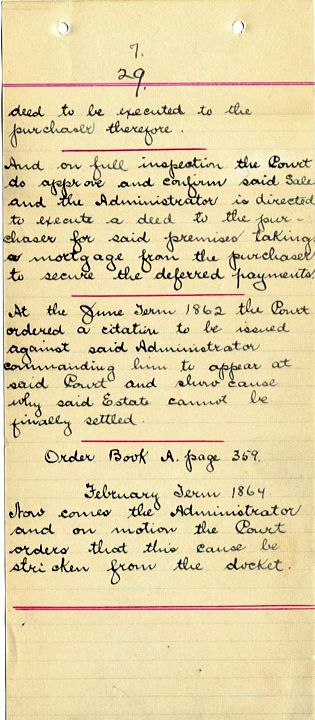 7.
29.
deed to be executed to the
purchaser therefore.
And on full inspection the Court
do approve and confirm said Sale
and the Administrator is directed
to execute a deed to the pur-
chaser for said premises taking
a mortgage from the purchaser
to secure the deferred payments.
At the June Term 1862 the Court
ordered a citation to be issued
against said Administrator
commanding him to appear at
said Court and show cause
why said Estate cannot be
finally settled.
Order Book A. page 359.
February Term 1864.
Now comes the Administrator
and on motion the Court
orders that this cause be
stricken from the docket.